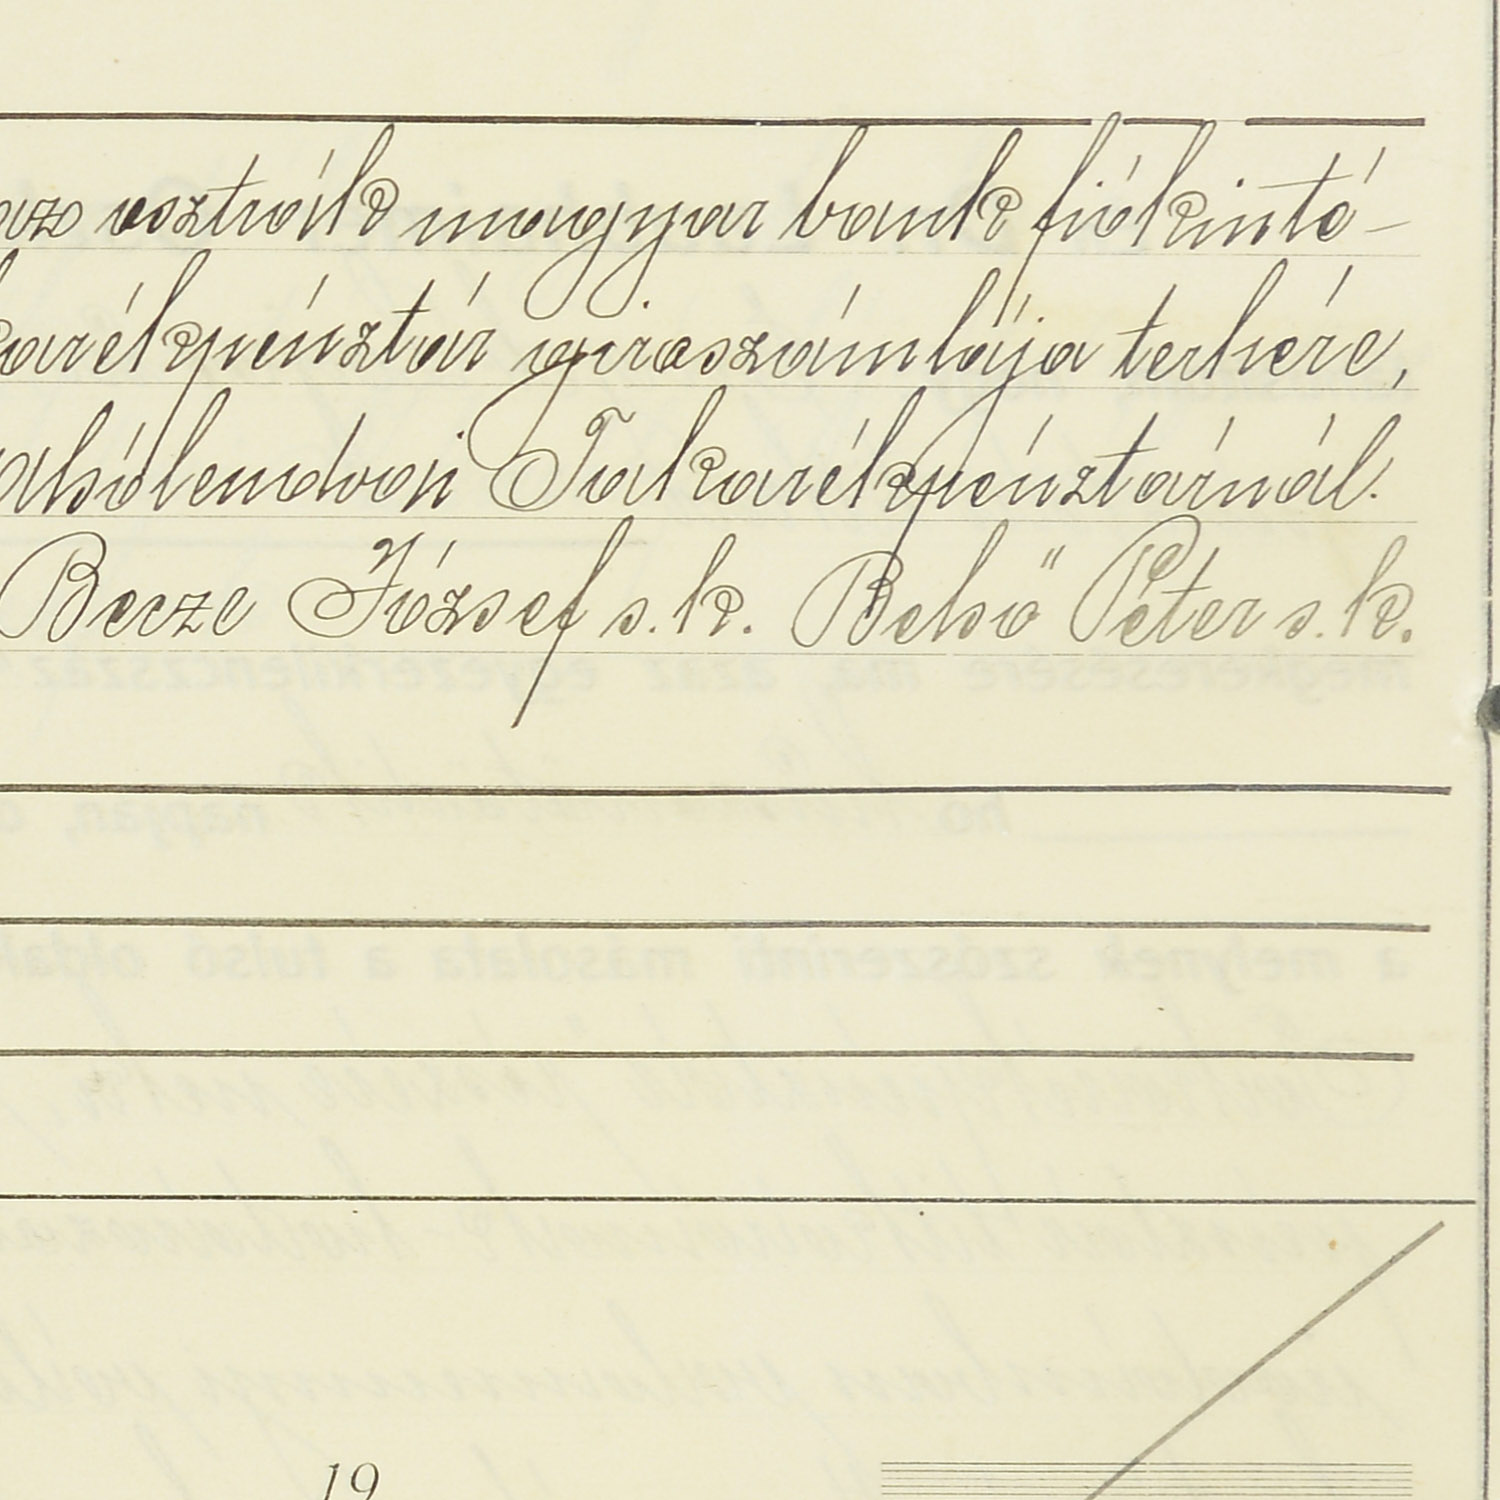 az osztrák magyar bank fiókinté-
karékpénztár giroszámlája terhére,
alsólendvai Takarékpénztárnál.
Becze József s. k. Belső Péter s. k.
19